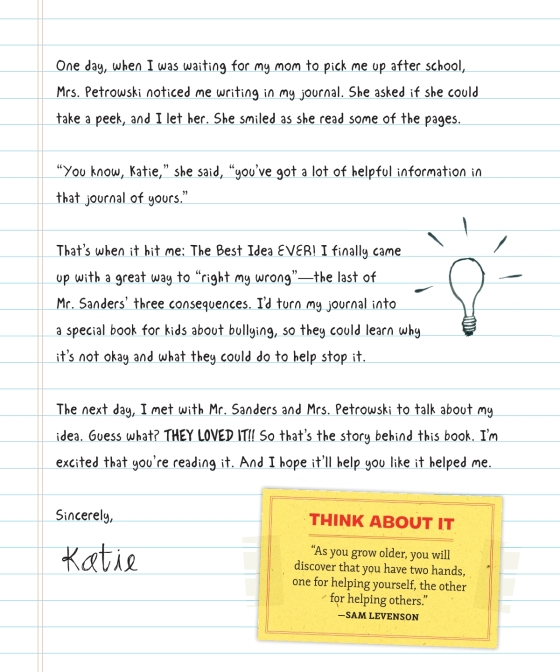 One day, when I was waiting for my mom to pick me up after school,
Mrs. Petrowski noticed me writing in my journal. She asked if she could
take a peek, and I let her. She smiled as she read some of the pages.
“You know, Katie,” she said, “you’ve got a lot of helpful information in
that journal of yours.”
That’s when it hit me: The Best Idea EVER! I finally came
up with a great way to “right my wrong”—the last of
Mr. Sanders’ three consequences. I’d turn my journal into
a special book for kids about bullying, so they could learn why
it’s not okay and what they could do to help stop it.
The next day, I met with Mr. Sanders and Mrs. Petrowski to talk about my
idea. Guess what? THEY LOVED IT!! So that’s the story behind this book. I’m
excited that you’re reading it. And I hope it’ll help you like it helped me.
Sincerely,
Katie
THINK ABOUT IT
“As you grow older, you will
discover that you have two hands,
one for helping yourself, the other
for helping others.”
—SAM LEVENSON